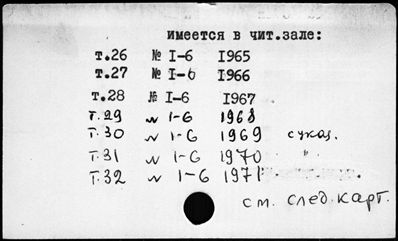 имеется в чит.зале:
т.26 № I-6 I965
т.27 № I-6 I966
т.28 № I-6 I967
т.29 № 1-6 1968
т.30 № 1-6 1969 с указ.
т.31 № 1-6 1970 "
т.32 № 1-6 1971
см. след. карт.